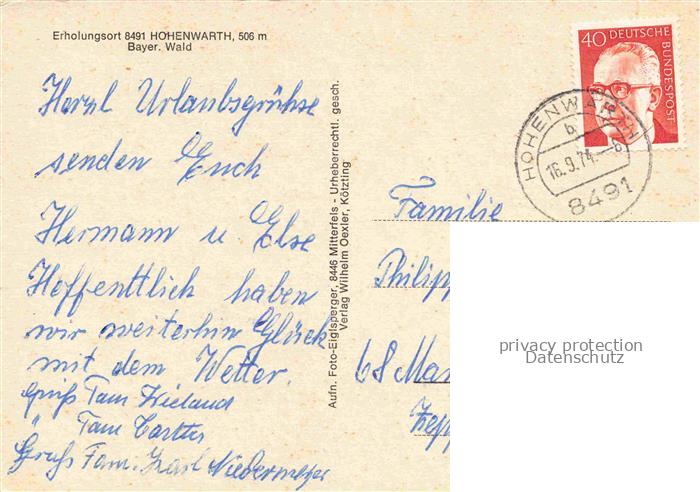 Erholungsort 8491 HOHENWARTH, 506 m
Bayer. Wald
Herzl Urlaubsgrühse
senden Euch
Hermann u Else
Hoffentlich haben
wir weiterhin Glück
mit dem Wetter.
Gruß Fam Wieland
" Fam
Gruß Fam. Karl Niedermeyer
Aufn. Foto-Eiglsperger, 8446 Mitterfels - Urheberrechtl. gesch.
Verlag Wilhelm Oexler, Kötzting
40 DEUTSCHE BUNDESPOST
HOHENWARTH
b
16.9.74.-6
8491
Familie
Philipp
68 Man
Zepp
privacy protection
Datenschutz